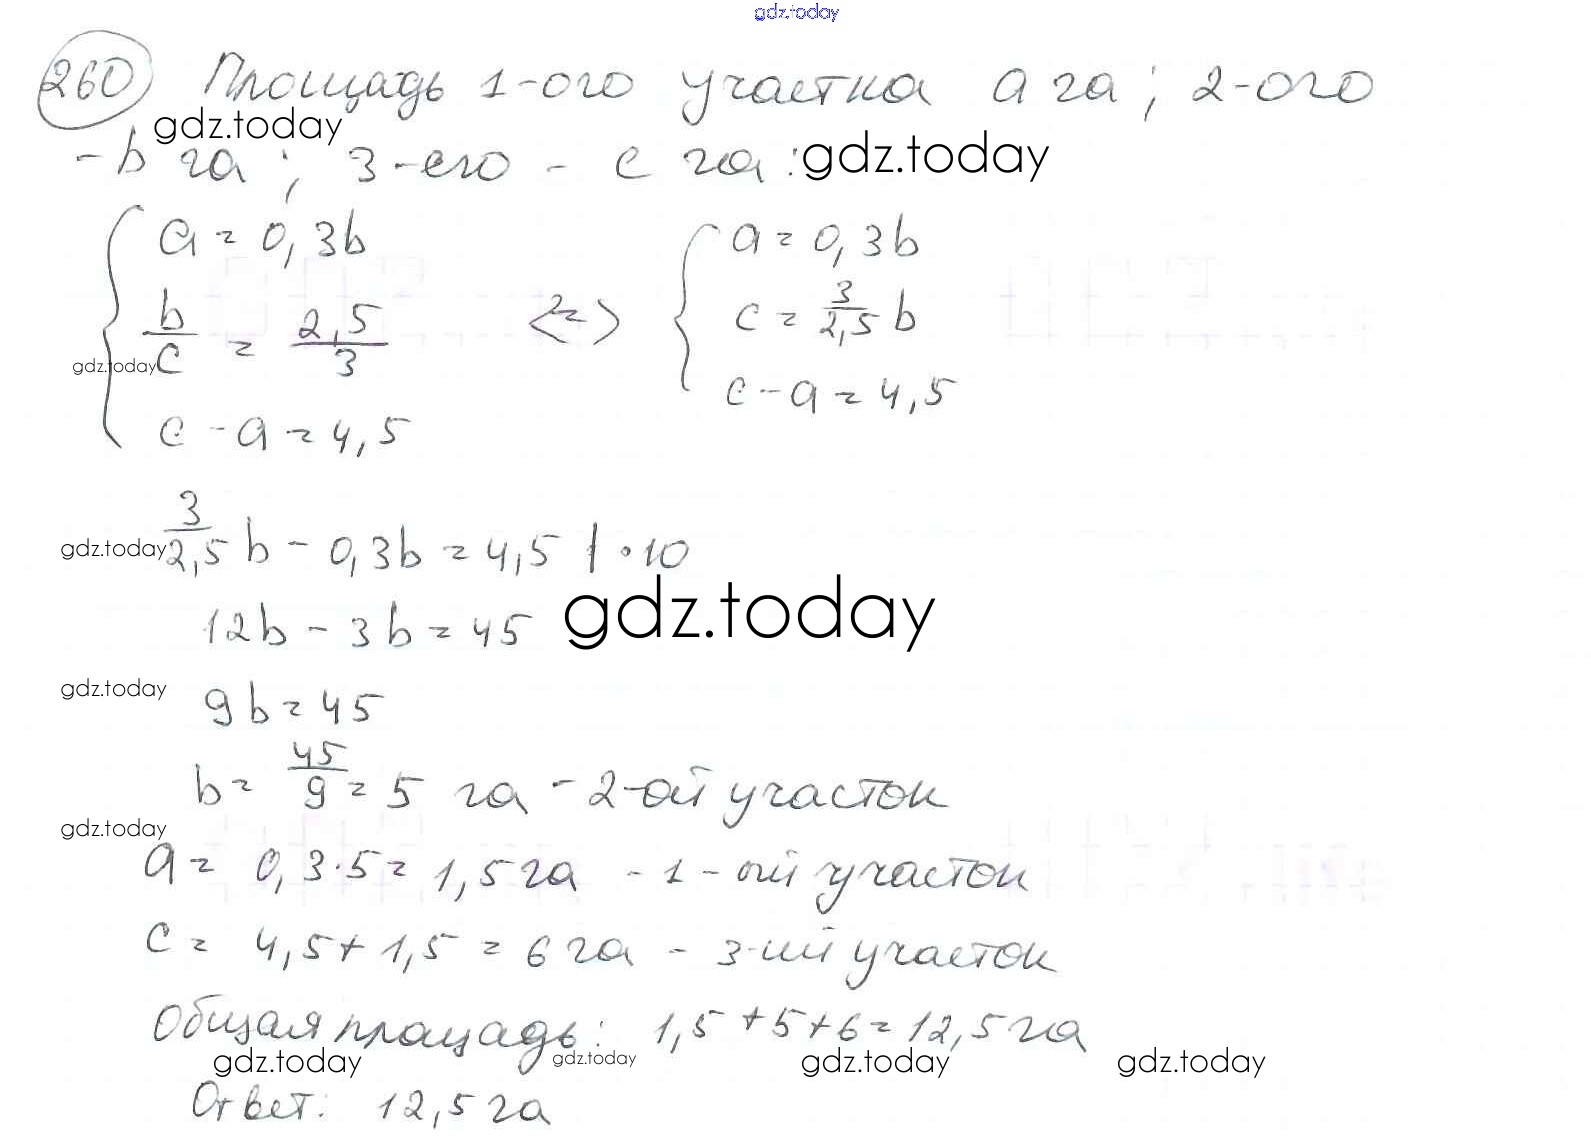 gdz.today
260 Площадь 1-ого участка a га; 2-ого
gdz.today
- b га; 3-его - c га:
gdz.today
{ a = 0,3b
b/c = 2,5/3
c - a = 4,5
<=>
{ a = 0,3b
c = 3/2,5 b
c - a = 4,5
gdz.today
3/2,5 b - 0,3b = 4,5 | · 10
gdz.today
12b - 3b = 45
gdz.today
9b = 45
gdz.today
b = 45/9 = 5 га - 2-ой участок
gdz.today
a = 0,3·5 = 1,5 га - 1-ый участок
c = 4,5 + 1,5 = 6 га - 3-ий участок
Общая площадь: 1,5 + 5 + 6 = 12,5 га
gdz.today gdz.today gdz.today gdz.today
Ответ: 12,5 га